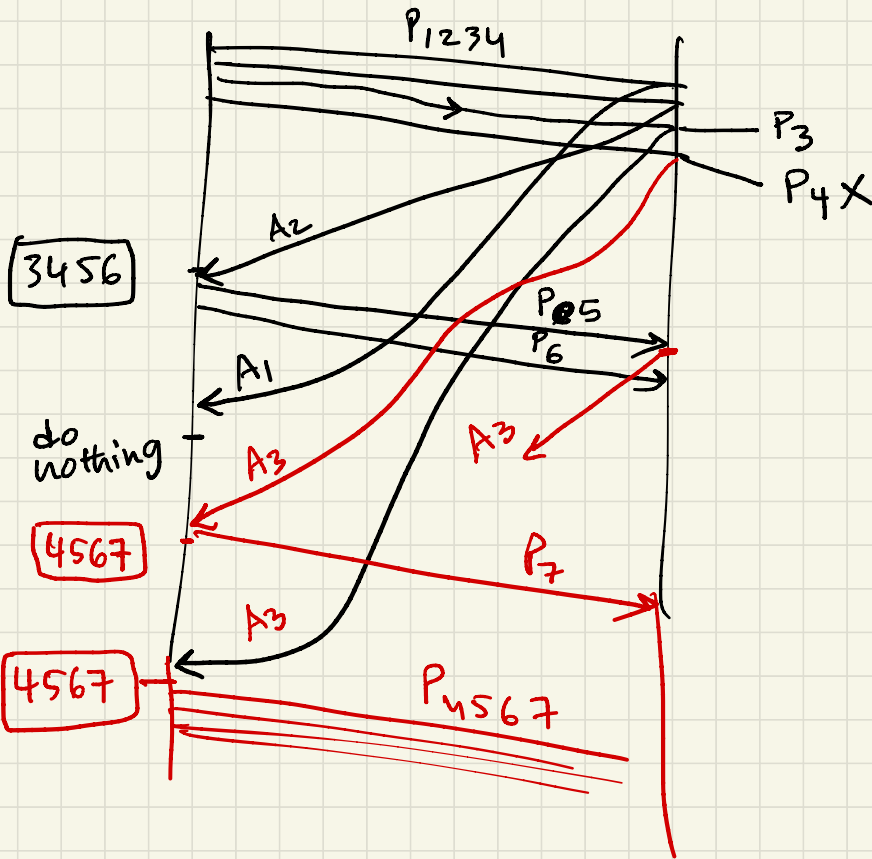 P1234
P3
P4 X
A2
3456
P 5
P6
A1
do
nothing
A3
A3
4567
P7
A3
4567
P4567